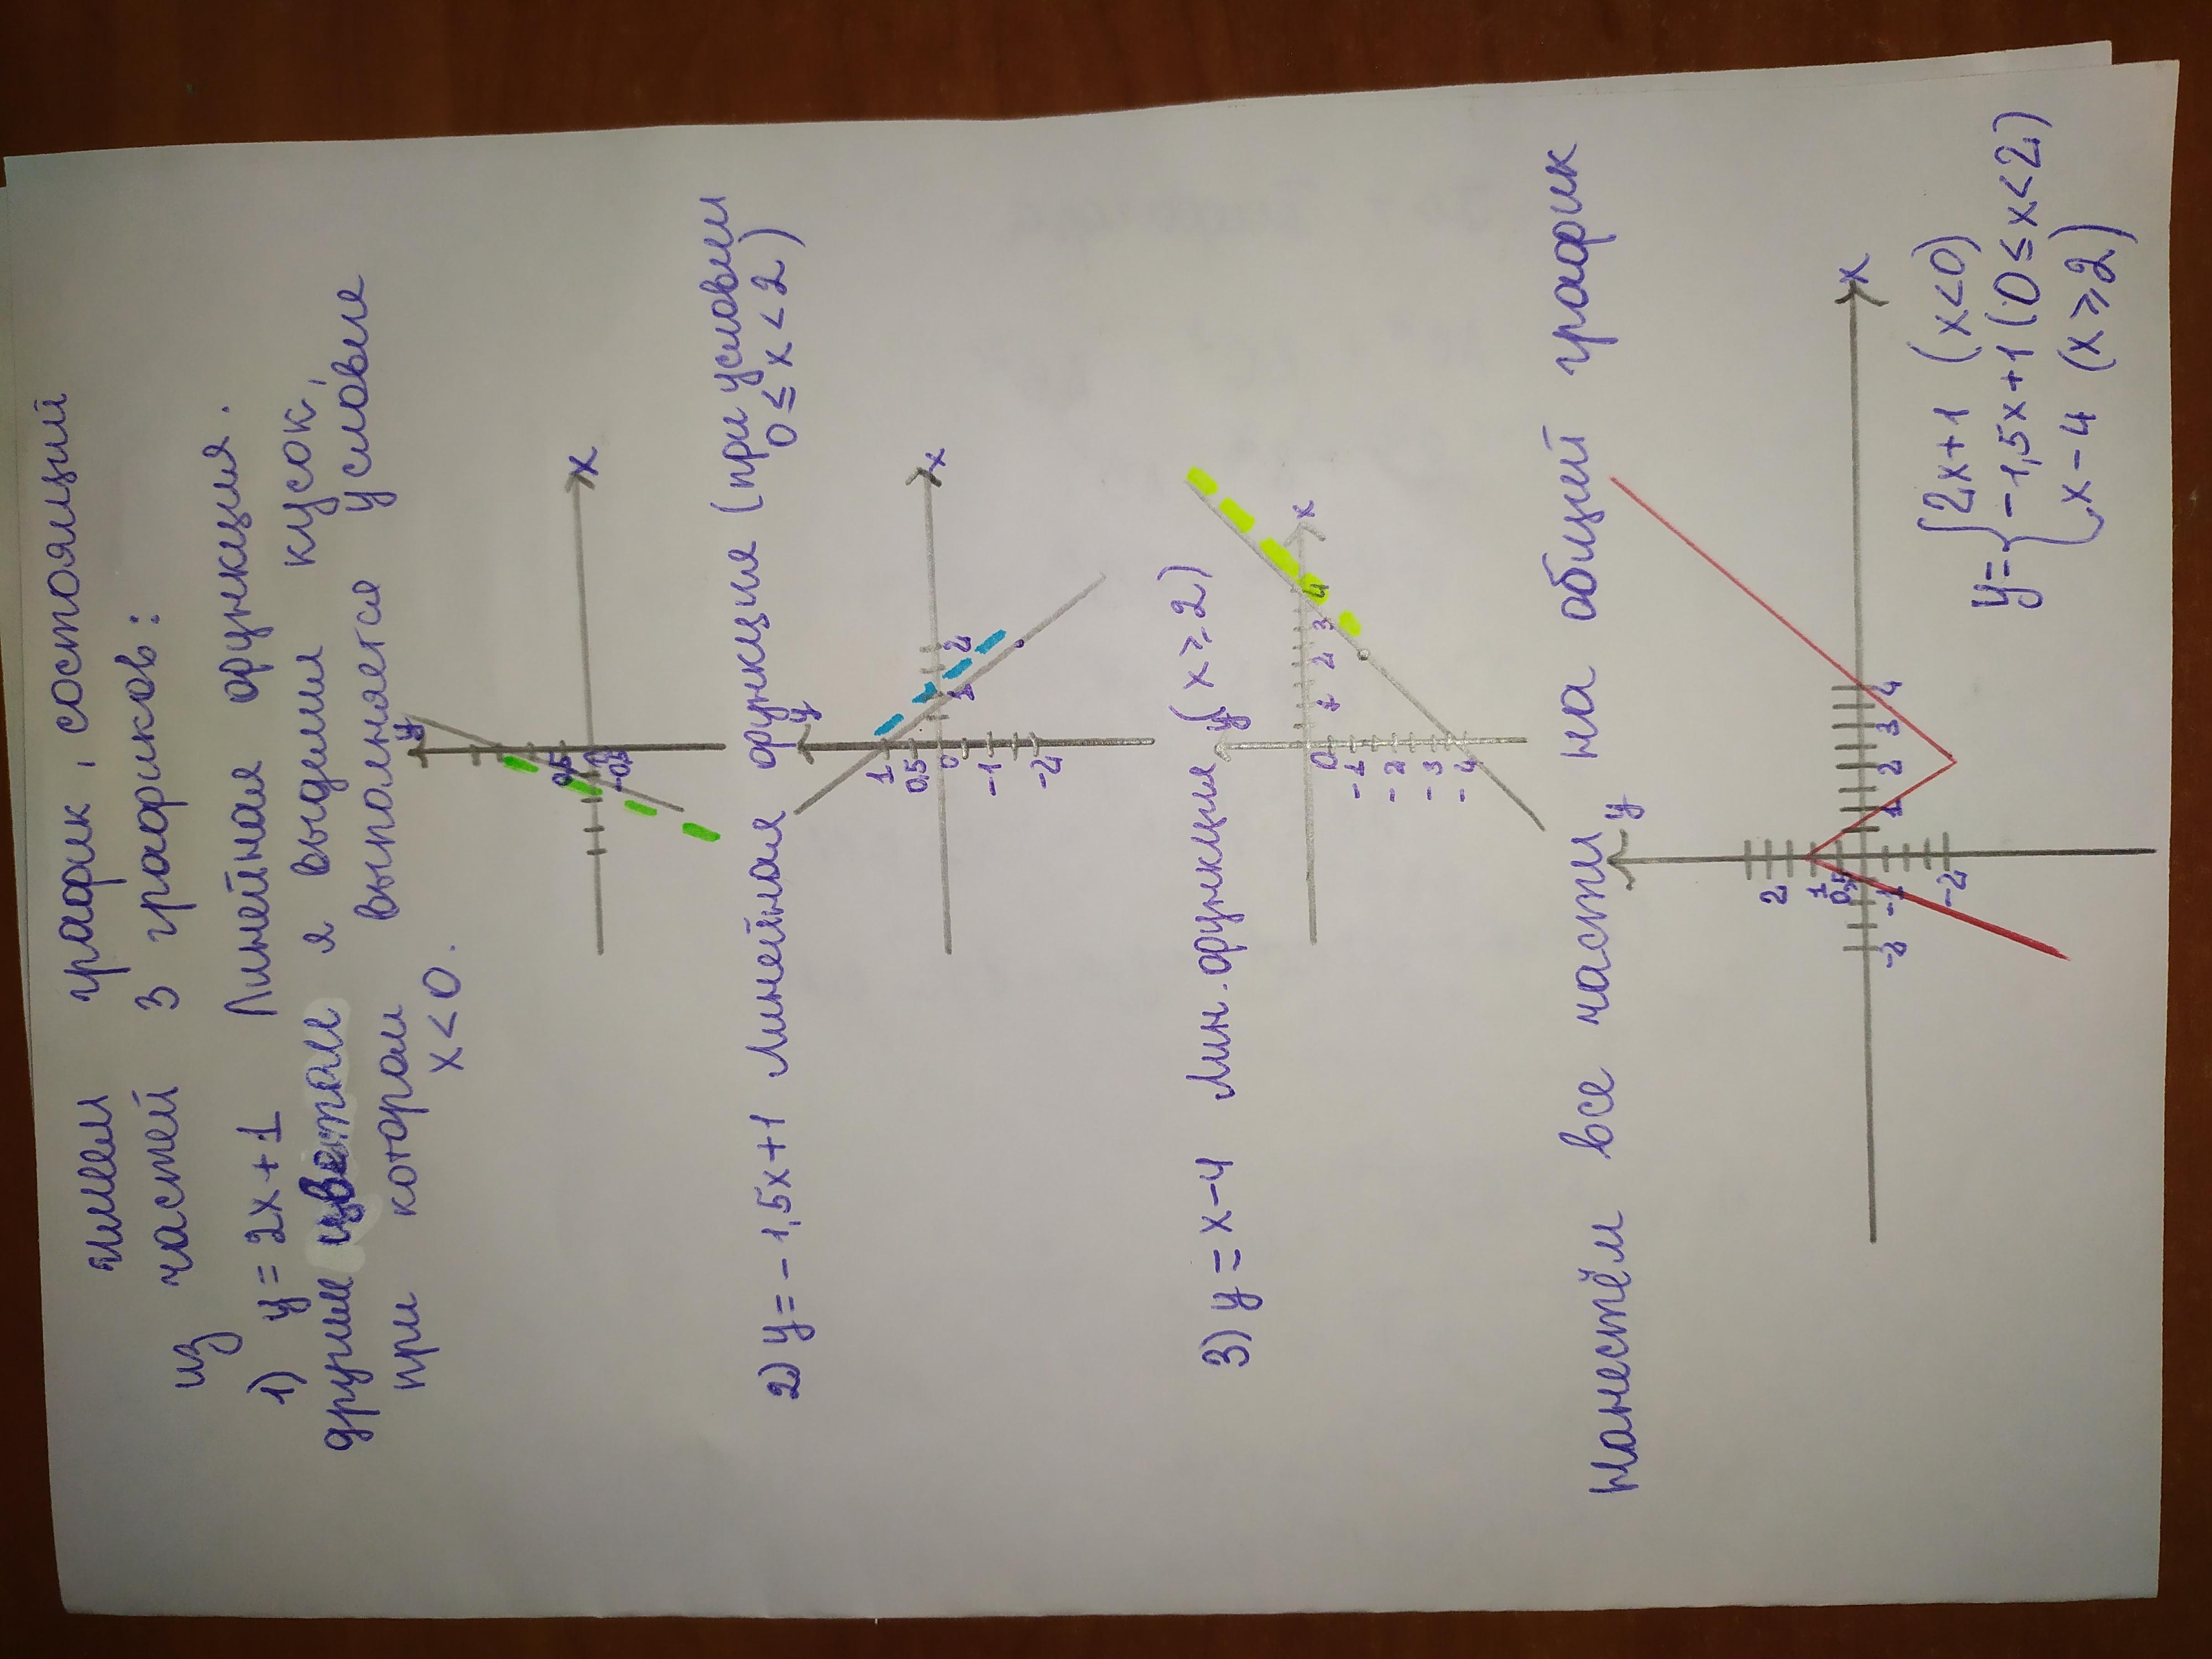 имеем график, состоящий
из частей 3 графиков:
1) y = 2x+1 Линейная функция.
другим цветом я выделим кусок,
при котором выполняется условие
x < 0.
y
x
0,5
-0,5
2) y = -1,5x+1 линейная функция (при условии
0 ≤ x < 2)
y
x
1
0,5
0
1
2
-1
-2
3) y = x-4 лин. функция (x ≥ 2)
y
x
0
1
2
3
4
-1
-2
-3
-4
нанесём все части на общий график
y
x
2
1
0,5
-2
-1
1
2
3
4
-2
y = { 2x+1 (x<0)
-1,5x+1 (0≤x<2)
x-4 (x≥2)